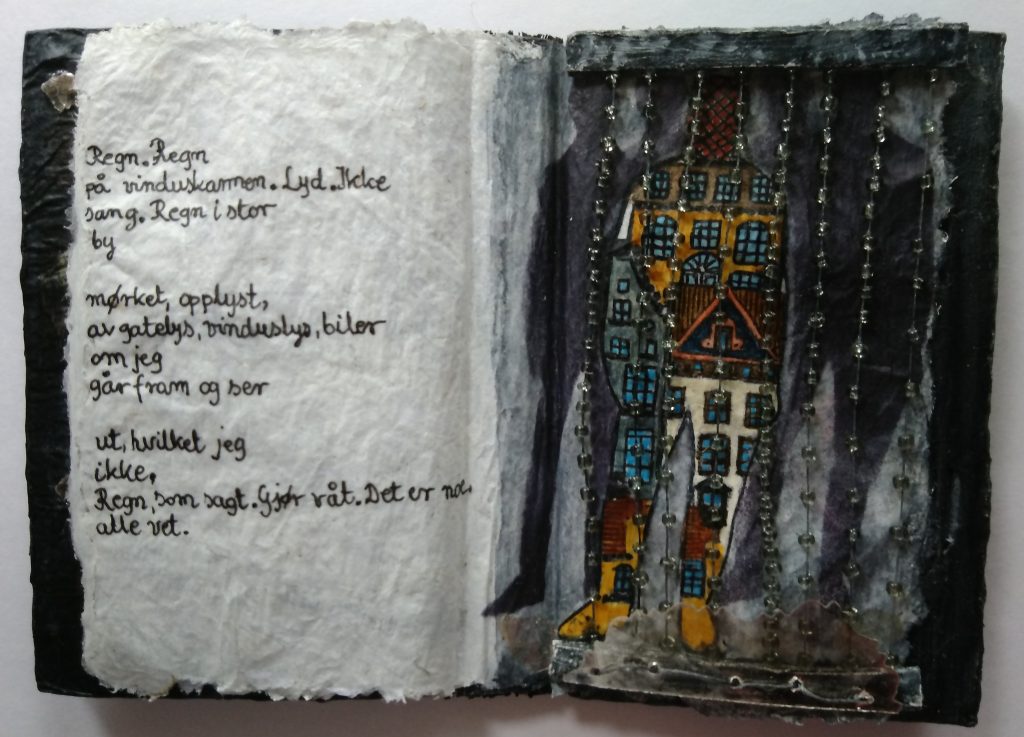 Regn. Regn
på vinduskarmen. Lyd. Ikke
sang. Regn i stor
by
mørket, opplyst,
av gatelys, vinduslys, biler
om jeg
går fram og ser
ut, hvilket jeg
ikke,
Regn, som sagt. Gjør våt. Det er noe
alle vet.